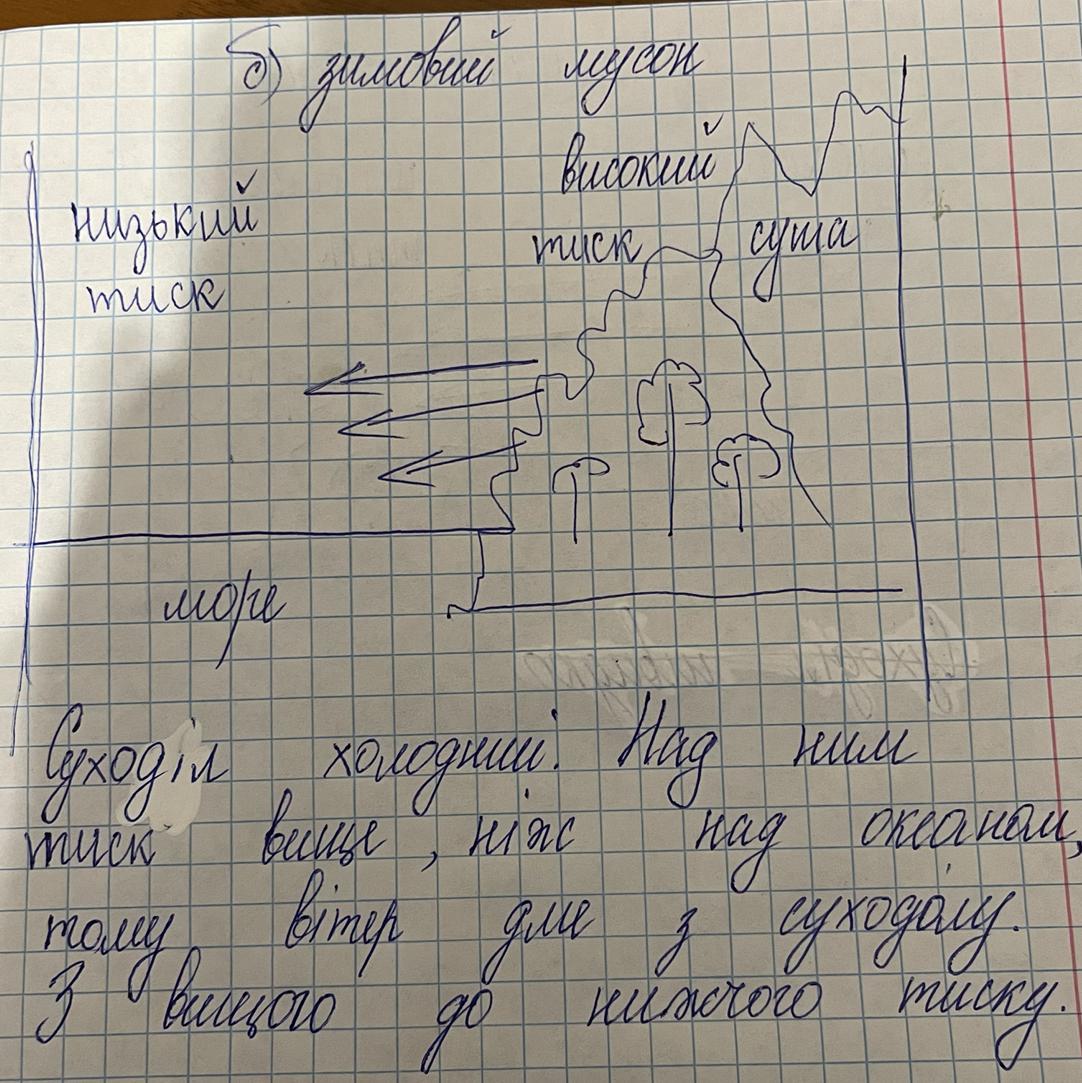 б) зимовий мусон
високий
низький
тиск суша
тиск
море
Суходіл холодний. Над ним
тиск вище, ніж над океаном,
тому вітер дме з суходолу.
З вищого до нижчого тиску.